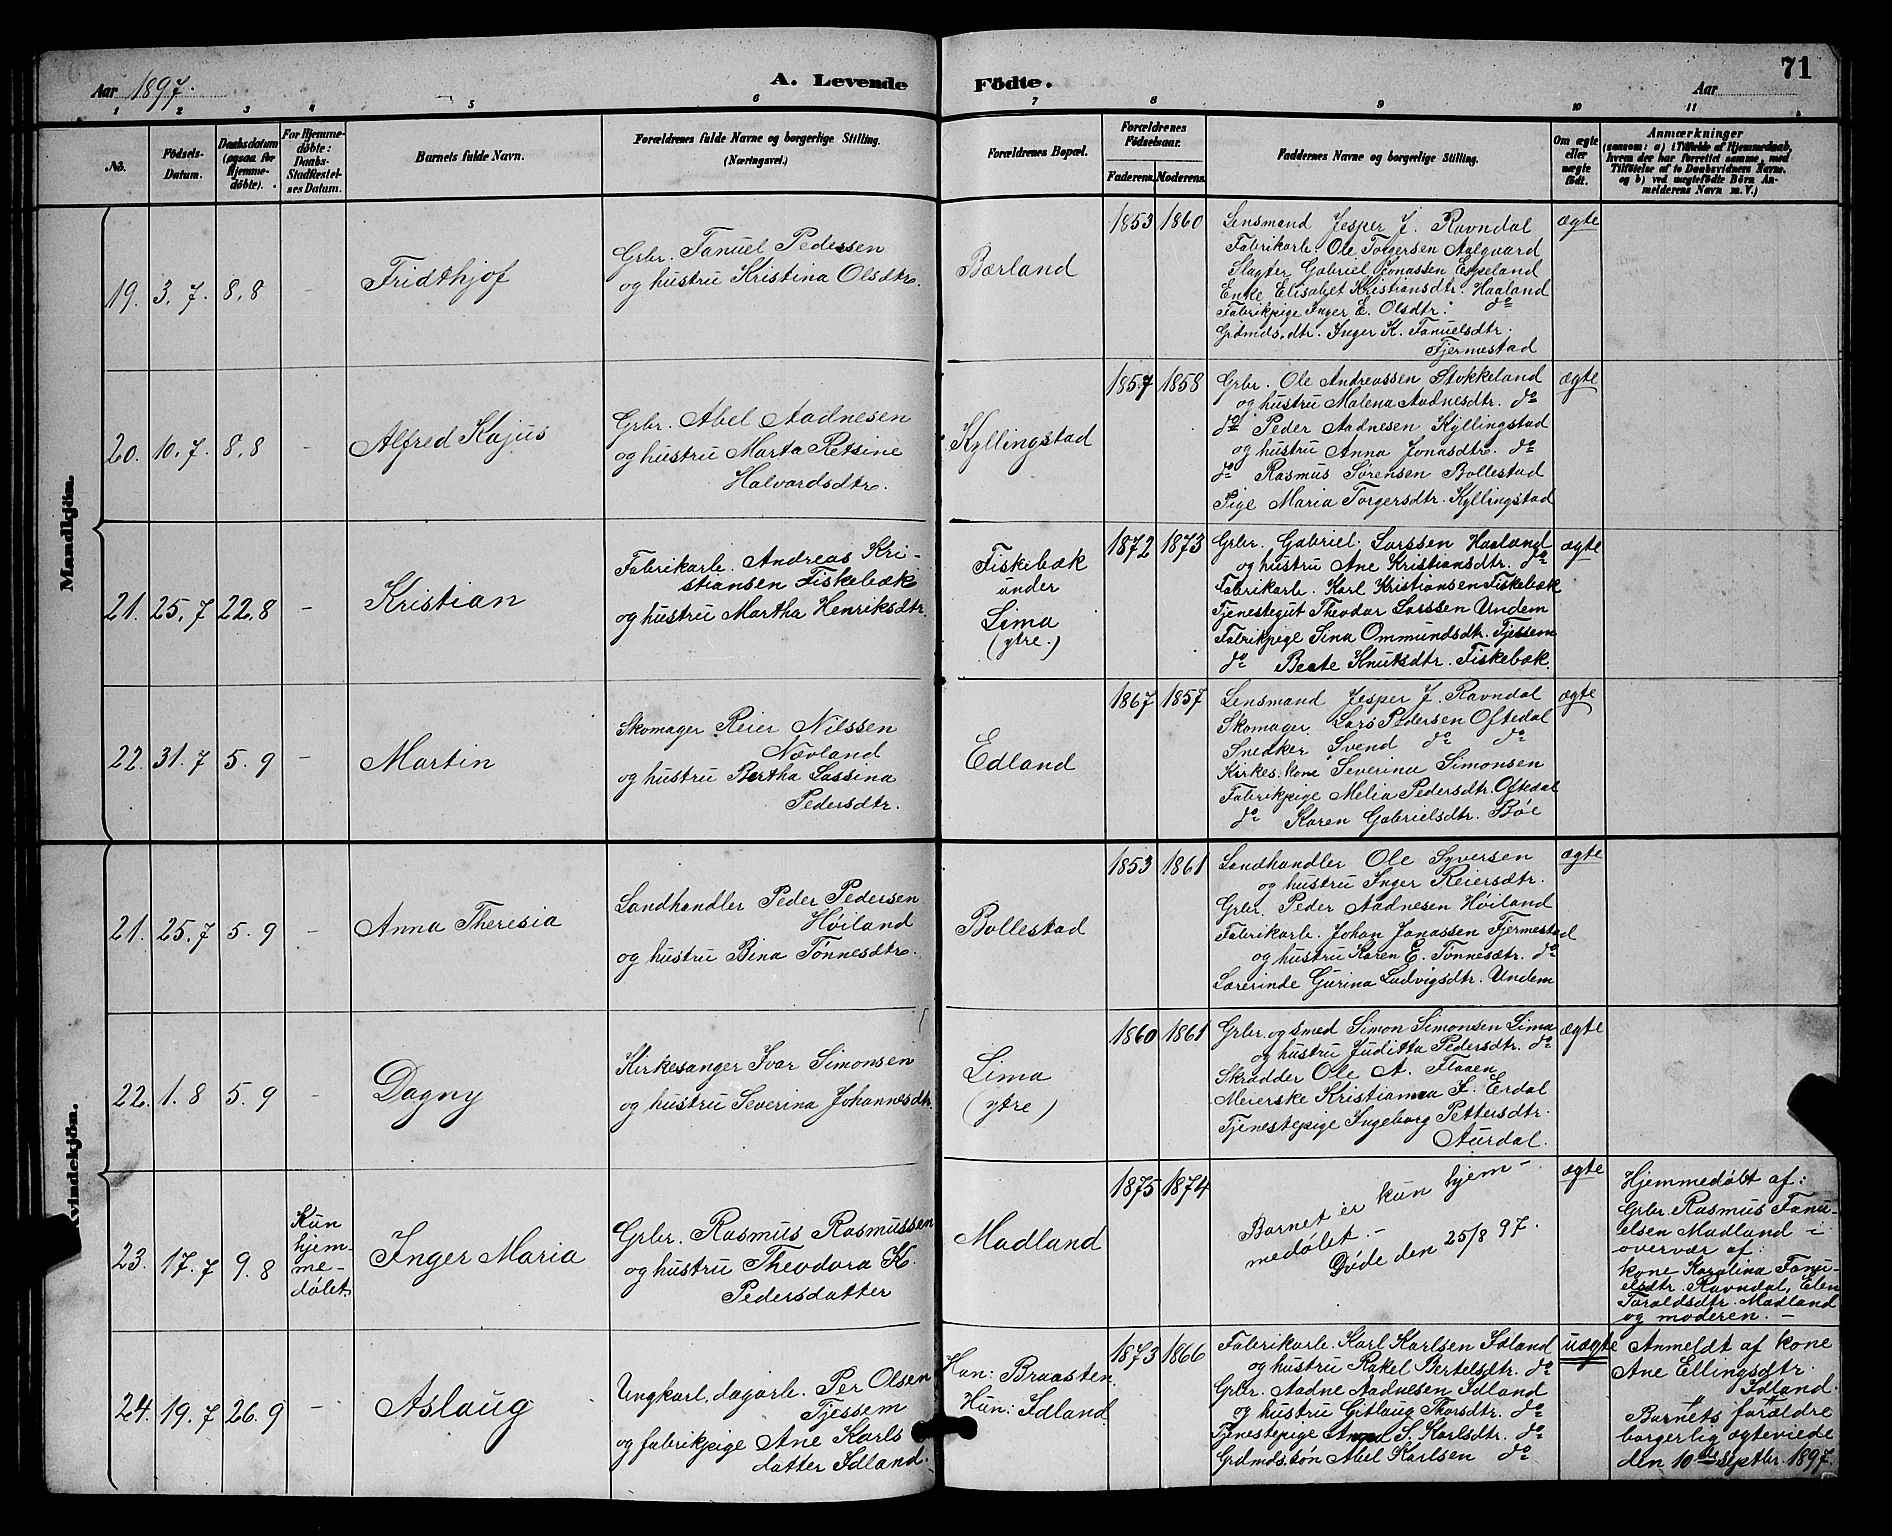 Aar 1897. A. Levende Födte. Aar 71
1 2 3 4 5 6 7 8 9 10 11
No. Födsels-Datum. Daabsdatum (ogsaa for Hjemmedöbte). For Hjemmedöbte: Daabs-Stadfæstelses Datum. Barnets fulde Navn. Forældrenes fulde Navne og borgerlige Stilling. (Næringsvei.) Forældrenes Bopæl. Forældrenes Födselsaar. Faderens. Moderens. Faddernes Navne og borgerlige Stilling. Om ægte eller uægte födt. Anmærkninger (saasom: a) i Tilfælde af Hjemmedaab, hvem der har forrettet samme, med Tilföielse af to Daabsvidners Navne, og b) ved uægtefödte Börn Anmelderens Navn m. V.)
Mandkjön.
19. 3.7. 8.8 - Fridthjof
Grbr. Fanuel Pedersen
og hustru Kristina Olsdtr.
Bærland
1853 1860
Lensmand Jesper J. Ravndal
Fabrikarb. Ole Torgersen Aalgaard
Slagter Gabriel Jonassen Espeland
Enke Elisabet Kristiansdtr. Haaland
Fabrikpige Inger E. Olsdtr. do
Grdmds.dtr. Inger K. Fanuelsdtr.
Fjermestad
ægte
20. 10.7. 8.8 - Alfred Kajus
Grbr. Abel Aadnesen
og hustru Marta Retsine
Halvardsdtr.
Kyllingstad
1857 1858
Grbr. Ole Andreassen Stokkeland
og hustru Malena Aadnesdtr. do
do Peder Aadnesen Kyllingstad
og hustru Anna Jonasdtr. do
do Rasmus Sørensen Bollestad
Pige Maria Torgersdtr. Kyllingstad
ægte
21. 25.7 22.8 - Kristian
Fabrikarb. Andreas Kri-
stiansen Fiskebæk
og hustru Martha Henriksdtr.
Fiskebæk
under
Lima
(ytre.)
1872 1873
Grbr. Gabriel Larssen Haaland
og hustru Ane Kristiansdtr. do
Fabrikarb. Karl Kristiansen Fiskebæk
Tjenestegut Theodor Larssen Undem
Fabrikpige Sina Ommundsdtr. Tjessem
do Beate Knutsdtr. Fiskebæk.
ægte
22. 31.7 5.9 - Martin
Skomager Reier Nilssen
Nævland
og hustru Bertha Sassina
Pedersdtr.
Edland
1867 1857
Lensmand Jesper J. Ravndal
Skomager Lars Pedersen Oftedal
Snedker Svend do do
Kirkes.kone Severina Simonsen
Fabrikpige Melia Pedersdtr. Oftedal
do Karen Gabrielsdtr. Bøe
ægte
Kvindekjön.
21. 25.7 5.9 - Anna Theresia
Landhandler Peder Pedersen
Høiland
og hustru Bina Tønnesdtr.
Bollestad
1853 1861
Landhandler Ole Syversen
og hustru Inger Reiersdtr.
Grbr. Peder Aadnesen Høiland
Fabrikarb. Johan Jonassen Fjermestad
og hustru Karen E. Tønnesdtr. do
Lærerinde Gurina Ludvigsdtr. Undem
ægte
22. 1.8 5.9 - Dagny
Kirkesanger Ivar Simonsen
og hustru Severina Johannesdtr.
Lima
(ytre)
1860 1861
Grbr. og smed Simon Simonsen Lima
og hustru Juditta Pedersdtr. do
Skrædder Ole A. Flaaen
Meierske Kristianna S. Erdal
Tjenestepige Ingeborg Pettersdtr.
Aurdal.
ægte
23. 17.7 9.8
Kun
hjem-
me-
døbt
Inger Maria
Grbr. Rasmus Rasmussen
og hustru Theodora K.
Pedersdatter
Madland
1875 1874
Barnet er kun hjem-
medøbt. -
Døde den 25/8 97.
ægte
Hjemmedøbt af:
Grbr. Rasmus Fanu-
elsen Madland - i
overvær af:
kone Karolina Fanu-
elsdtr. Ravndal, Elen
Taraldsdtr. Madland
og moderen. -
24. 19.7 26.9 - Aslaug
Ungkarl, dagarb. Per Olsen
Tjessem
og fabrikpige Ane Karls
datter Idland.
Han: Braasten.
Hun: Idland
1873 1866
Fabrikarb. Karl Karlsen Idland
og hustru Rakel Bertelsdtr. do
Grbr. Aadne Aadnesen Idland
og hustru Gitlaug Thorsdtr. do
Tjenestepige S. Karlsdtr. do
Grdmds.søn Abel Karlsen do
uægte
Anmeldt af kone
Ane Ellingsdtr.
Idland.
Barnets forældre
borgerlig ægteviede
den 10de septbr. 1897.